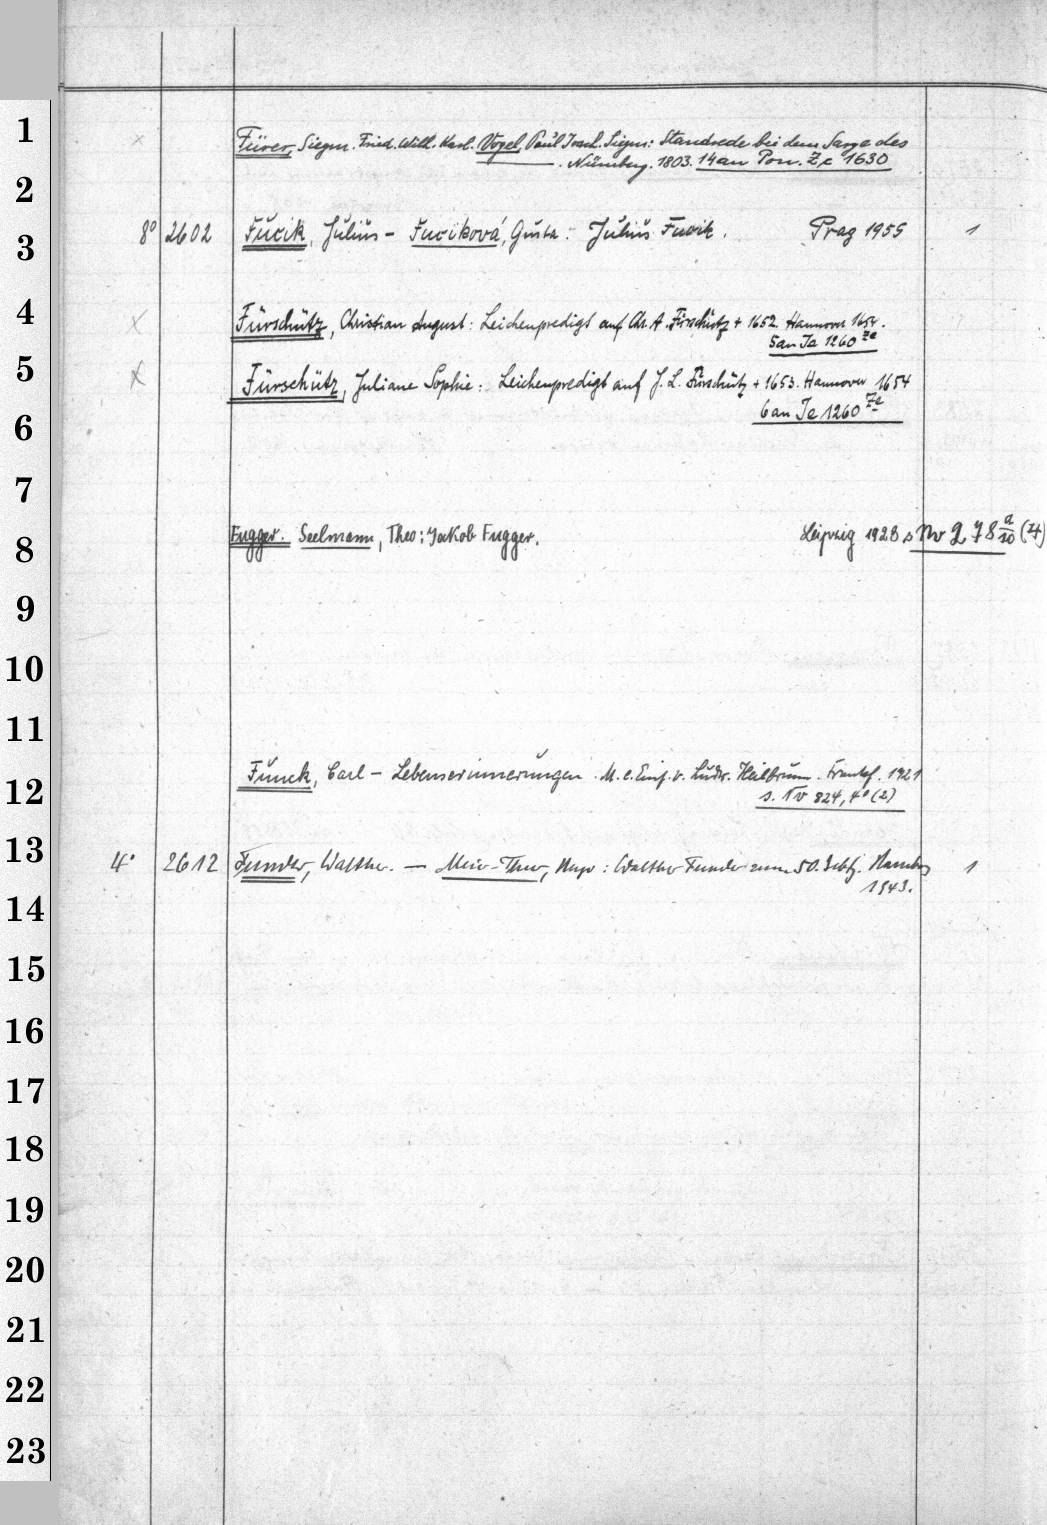 1
x Fürer, Siegm. Fried. Wilh. Karl. Vogel, Paul Joach. Siegm: Standrede bei dem Sarge des
2
Nürnberg. 1803. 14 an Pon. Zc 1630
3
8° 2602 Fučik, Julius - Fučiková, Gusta: Julius Fučik. Prag 1955 1
4
x Fürschütz, Christian August: Leichenpredigt auf Chr. A. Fürschütz + 1652. Hannover 1654.
5 an Je 1260 Ze
5
x Fürschütz, Juliane Sophie: Leichenpredigt auf J. L. Fürschütz + 1653. Hannover 1654
6
6 an Je 1260 Ze
7
8
Fugger. Seelmann, Theo: Jakob Fugger. Leipzig 1928 s Nv 278 a/20 (4)
9
10
11
12
Funck, Carl - Lebenserinnerungen. M. e. Einf. v. Ludw. Heilbrunn. Frankf. 1921
s. Nv 824, 4° (2)
13
4° 2612 Funder, Walther. — Meier-Thur, Hugo: Walther Funder zum 50. Gebtg. Hamburg 1
1943.
14
15
16
17
18
19
20
21
22
23